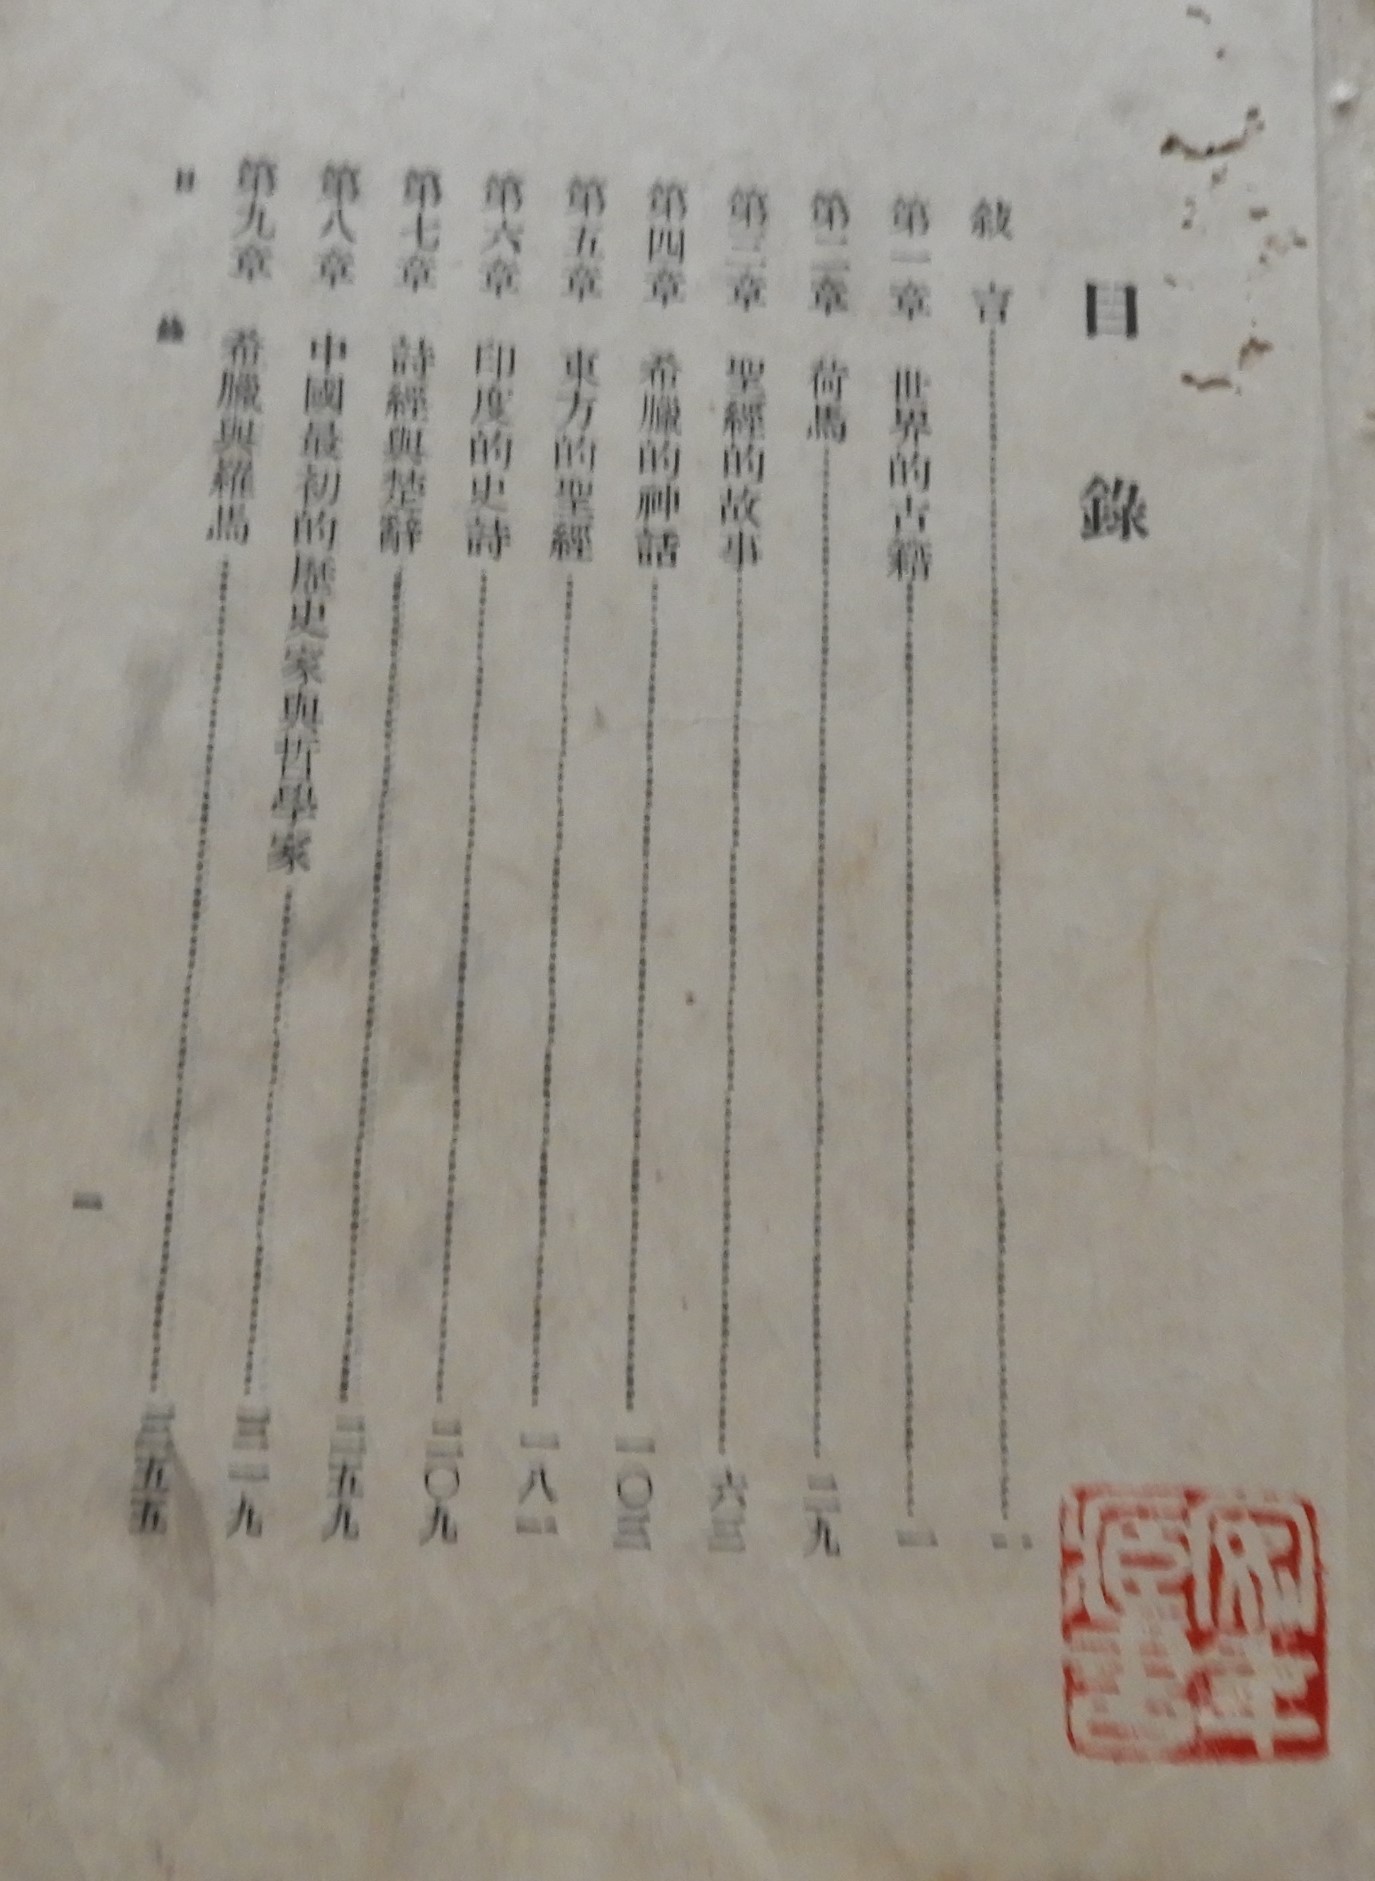 目錄
敍言
第一章 世界的古籍 一
第二章 荷馬 二九
第三章 聖經的故事 六三
第四章 希臘的神話 一〇三
第五章 東方的聖經 一八一
第六章 印度的史詩 二〇九
第七章 詩經與楚辭 二五九
第八章 中國最初的歷史家與哲學家 三一九
第九章 希臘與羅馬 三五五
目錄
一